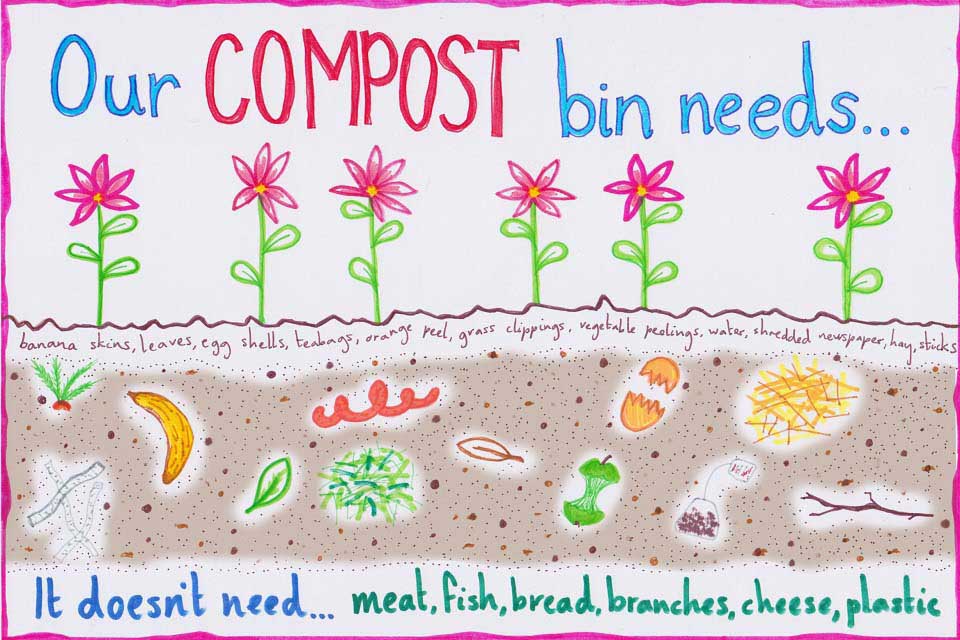 Our COMPOST bin needs...
banana skins, leaves, egg shells, teabags, orange peel, grass clippings, vegetable peelings, water, shredded newspaper, hay, sticks
It doesn't need... meat, fish, bread, branches, cheese, plastic